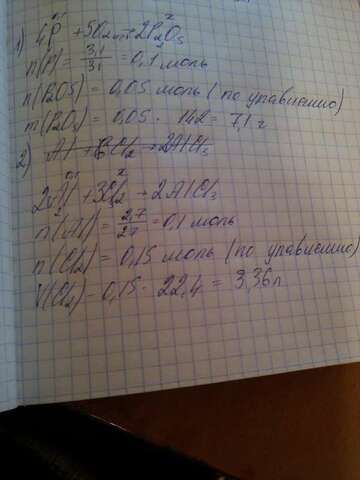 0,1 x
1) 4P + 5O2 → 2P2O5
n(P) = 3,1/31 = 0,1 моль
n(P2O5) = 0,05 моль (по уравнению)
m(P2O5) = 0,05 · 142 = 7,1 г
2) Al + Cl2 → 2AlCl3
0,1 x
2Al + 3Cl2 → 2AlCl3
n(Al) = 2,7/27 = 0,1 моль
n(Cl2) = 0,15 моль (по уравнению)
V(Cl2) = 0,15 · 22,4 = 3,36 л